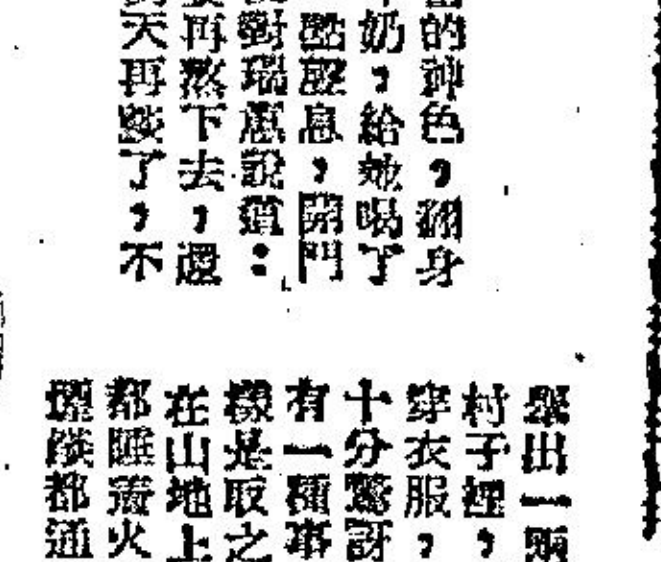 的神色，翻身
奶，給她喝了
息，開門
對瑞蕙說道：
再熬下去，還
天再談了，不
出一頭
村子裡，
穿衣服，
十分驚訝
有一種事
樣是取之
在山地上
都睡著火
都通